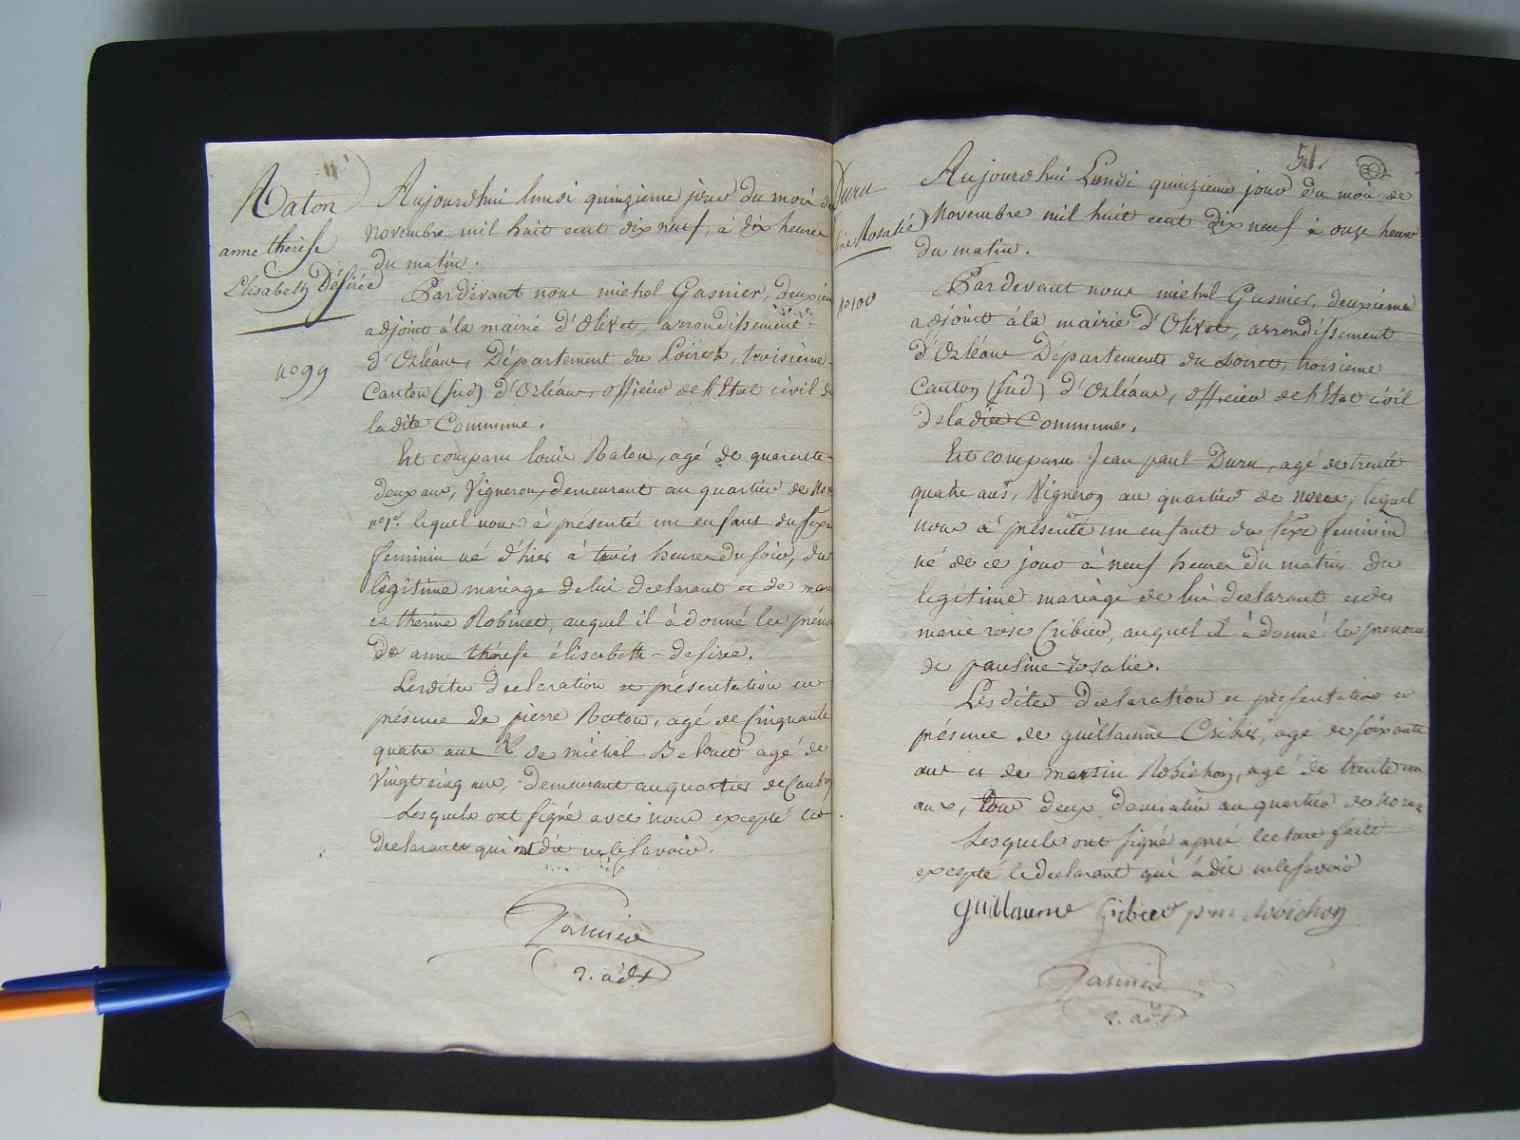 Raton
anne therese
Elisabeth Désirée
n.o 99
Aujourdhui lundi quinzieme jour du mois de
Novembre mil huit cent dix neuf, à dix heures
du matin.
Pardevant nous michel Gasnier, deuxieme
adjoint à la mairie d'Olivet, arrondissement
d'Orléans, Département du Loiret, troisieme
Canton (Sud) d'Orléans, officier de l'Etat civil de
ladite Commune.
Est comparu louis Raton, agé de quarante
deux ans, Vigneron, demeurant au quartier de
n.o 1.er lequel nous à présenté un enfant du sexe
feminin né d'hier à trois heures du soir, du
légitime mariage de lui declarant et de marie
catherine Robinet, auquel il à donné les prénoms
De anne thérese élisabeth-desirée.
Lesdites Declaration et présentation en
présence de pierre Raton, agé de cinquante
quatre ans & de michel agé de
Vingt cinq ans, demeurant au quartier de
Lesquels ont signé avec nous excepté les
Declarants qui ont dit ne le savoir.
Gasnier
2. adjt
51.
Duru
Rosalie
n.o 100
Aujourdhui Lundi quinzieme jour du mois de
Novembre mil huit cent dix neuf à onze heures
du matin.
Pardevant nous michel Gasnier, deuxième
adjoint à la mairie d'Olivet, arrondissement
d'Orléans Departement du Loiret, troisieme
Canton (Sud) d'Orléans, officier de l'Etat civil
de ladite Commune.
Est comparu Jean paul Duru, agé de trente
quatre ans, Vigneron au quartier de lequel
nous à présenté un enfant du sexe feminin
né de ce jour à neuf heures du matin du
legitime mariage de lui declarant et de
marie rose Cribier, auquel il à donné les prenoms
de pauline-rosalie.
Lesdites Declaration et presentation en
présence de guillaume Cribier, agé de soixante
ans et de martin Robichon, agé de trente un
ans, tous deux Domiciliés au quartier de
Lesquels ont signé après lecture faite
excepté le declarant qui à dit ne le savoir
guillaume Cribier
Gasnier
2. adjt